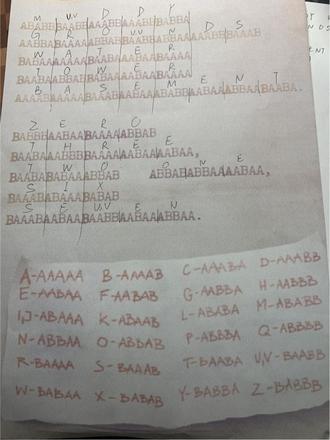 M U,V D D Y
ABABBBAABBAAABBAAABBBABBA
G R O U,V N D S
AABBABAAAAABBABBAABBABBAAAAABBBAAAB
W A T E R
BABAAAAAAABAABAAABAABAAAA
T O W E R
BAABAABBABBABAAAABAABAAAA
B A S E M E N T
AAAABAAAAABAAABAABAAABABBAABAAABBAABAABA.
Z E R O
BABBBAABAABAAAAABBAB
T H R E E
BAABAAABBBBAAAAAABAAAABAA,
T W O O N E
BAABABABAAABBAB ABBABABBAAAABAA,
S I X
BAAABABAAABABAB
S E U,V E N
BAAABAABAABAABBAABAAABBAA.
A-AAAAA B-AAAAB C-AAABA D-AAABB
E-AABAA F-AABAB G-AABBA H-AABBB
I,J-ABAAA K-ABAAB L-ABABA M-ABABB
N-ABBAA O-ABBAB P-ABBBA Q-ABBBB
R-BAAAA S-BAAAB T-BAABA U,V-BAABB
W-BABAA X-BABAB Y-BABBA Z-BABBB